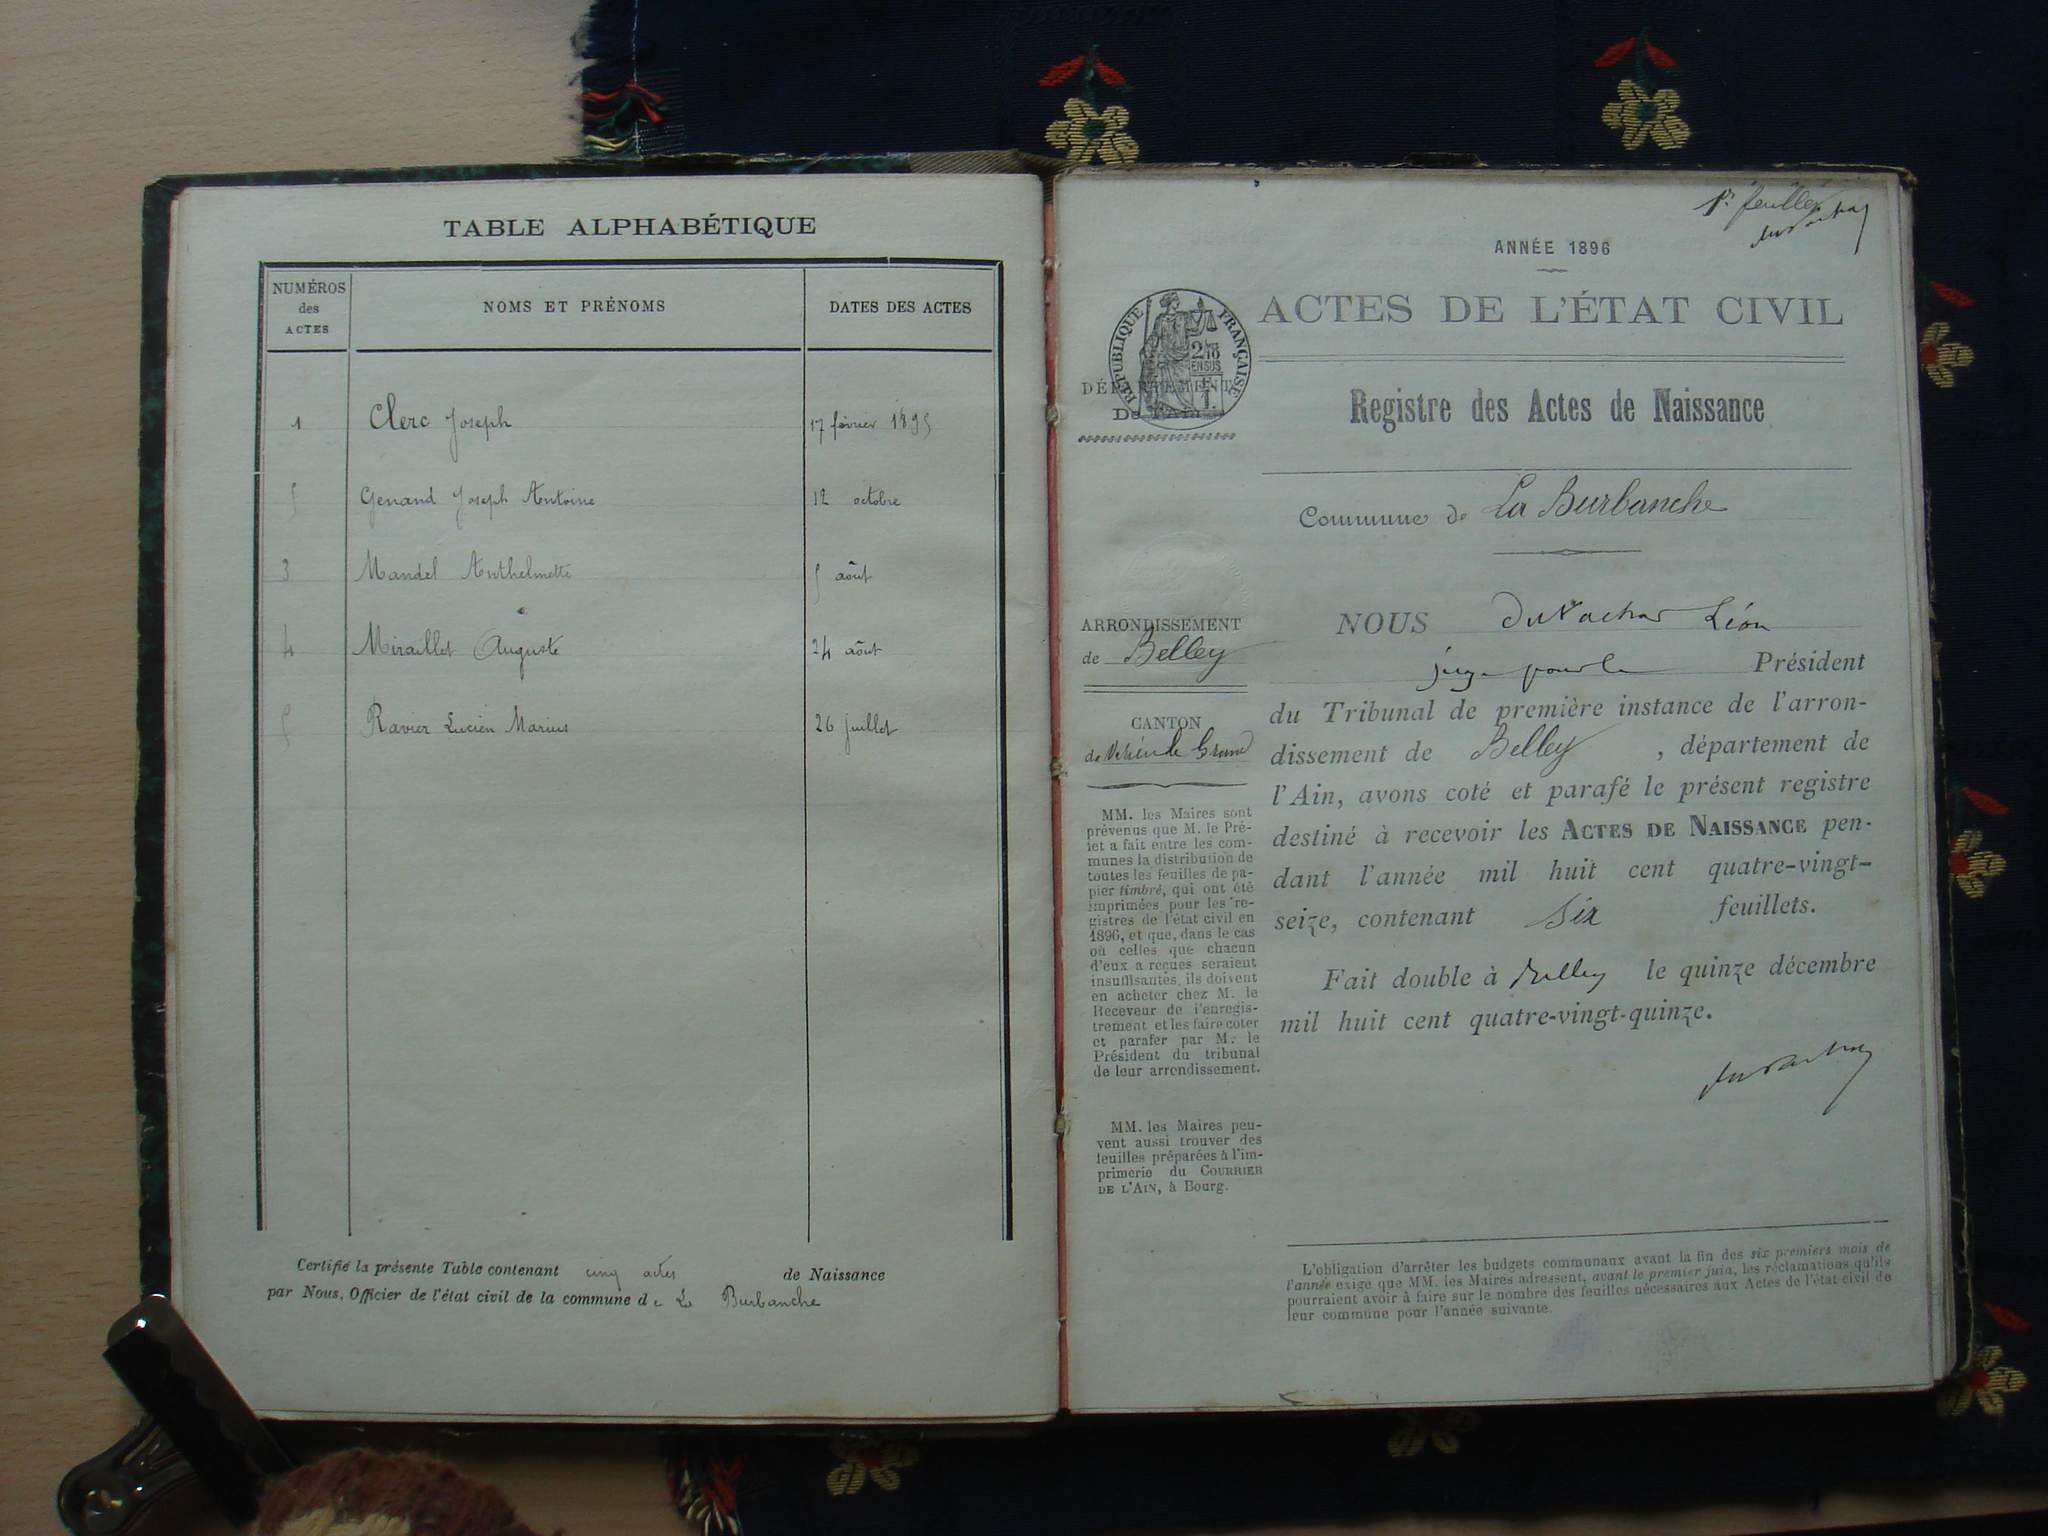 TABLE ALPHABÉTIQUE
NUMÉROS des ACTES
NOMS ET PRÉNOMS
DATES DES ACTES
1 Clerc Joseph 17 février 1895
5 Genand Joseph Antoine 12 octobre
3 Mandel Anthelmette 5 août
4 Miraillet Auguste 24 août
Ravier Lucien Marius 26 juillet
Certifié la présente Table contenant cinq actes de Naissance
par Nous, Officier de l'état civil de la commune de La Burbanche
1er feuillet
ANNÉE 1896
ACTES DE L'ÉTAT CIVIL
RÉPUBLIQUE FRANÇAISE
DÉPARTEMENT
De l'Ain
Registre des Actes de Naissance
Commune de La Burbanche
ARRONDISSEMENT
de Belley
CANTON
de
MM. les Maires sont
prévenus que M. le Pré-
fet a fait entre les com-
munes la distribution de
toutes les feuilles de pa-
pier timbré, qui ont été
imprimées pour les re-
gistres de l'état civil en
1896, et que, dans le cas
où celles que chacun
d'eux a reçues seraient
insuffisantes, ils doivent
en acheter chez M. le
Receveur de l'enregis-
trement et les faire coter
et parafer par M. le
Président du tribunal
de leur arrondissement.
MM. les Maires peu-
vent aussi trouver des
feuilles préparées à l'im-
primerie du COURRIER
DE L'AIN, à Bourg.
NOUS Léon
juge pour le Président
du Tribunal de première instance de l'arron-
dissement de Belley , département de
l'Ain, avons coté et parafé le présent registre
destiné à recevoir les ACTES DE NAISSANCE pen-
dant l'année mil huit cent quatre-vingt-
seize, contenant six feuillets.
Fait double à Belley le quinze décembre
mil huit cent quatre-vingt-quinze.
L'obligation d'arrêter les budgets communaux avant la fin des six premiers mois de
l'année exige que MM. les Maires adressent, avant le premier juin, les réclamations qu'ils
pourraient avoir à faire sur le nombre des feuilles nécessaires aux Actes de l'état civil de
leur commune pour l'année suivante.